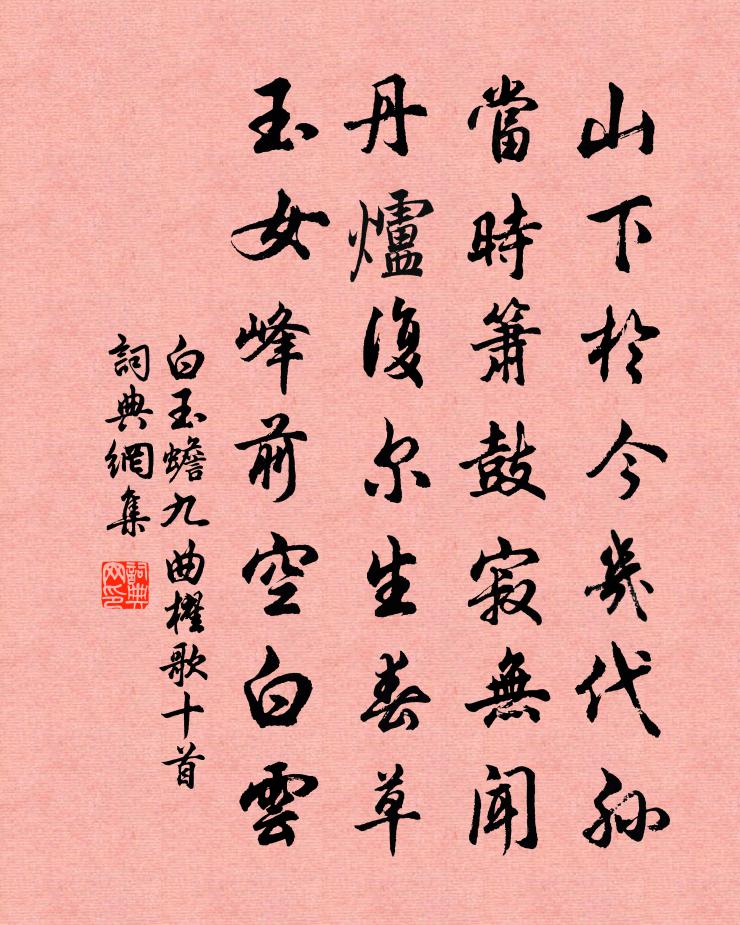 山下於今幾代孙
當時簫鼓寂無聞
丹爐復尔生春草
玉女峰前空白雲
白玉蟾九曲櫂歌十首
詞典網集
詞典网印